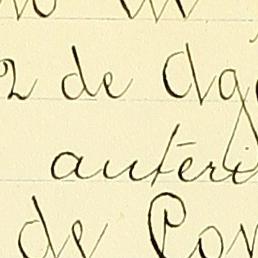 2 de Ag
autéri
de Con